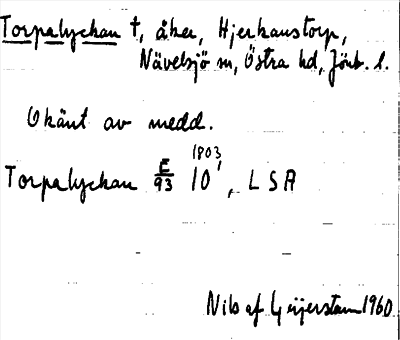 Torpalyckan †, åker, Hjerkanstorp,
Nävelsjö sn, Östra hd, Jönk. l.
Okänt av medd.
1803
Torpalyckan E/93 10', LSA
Nils af Geijerstam 1960